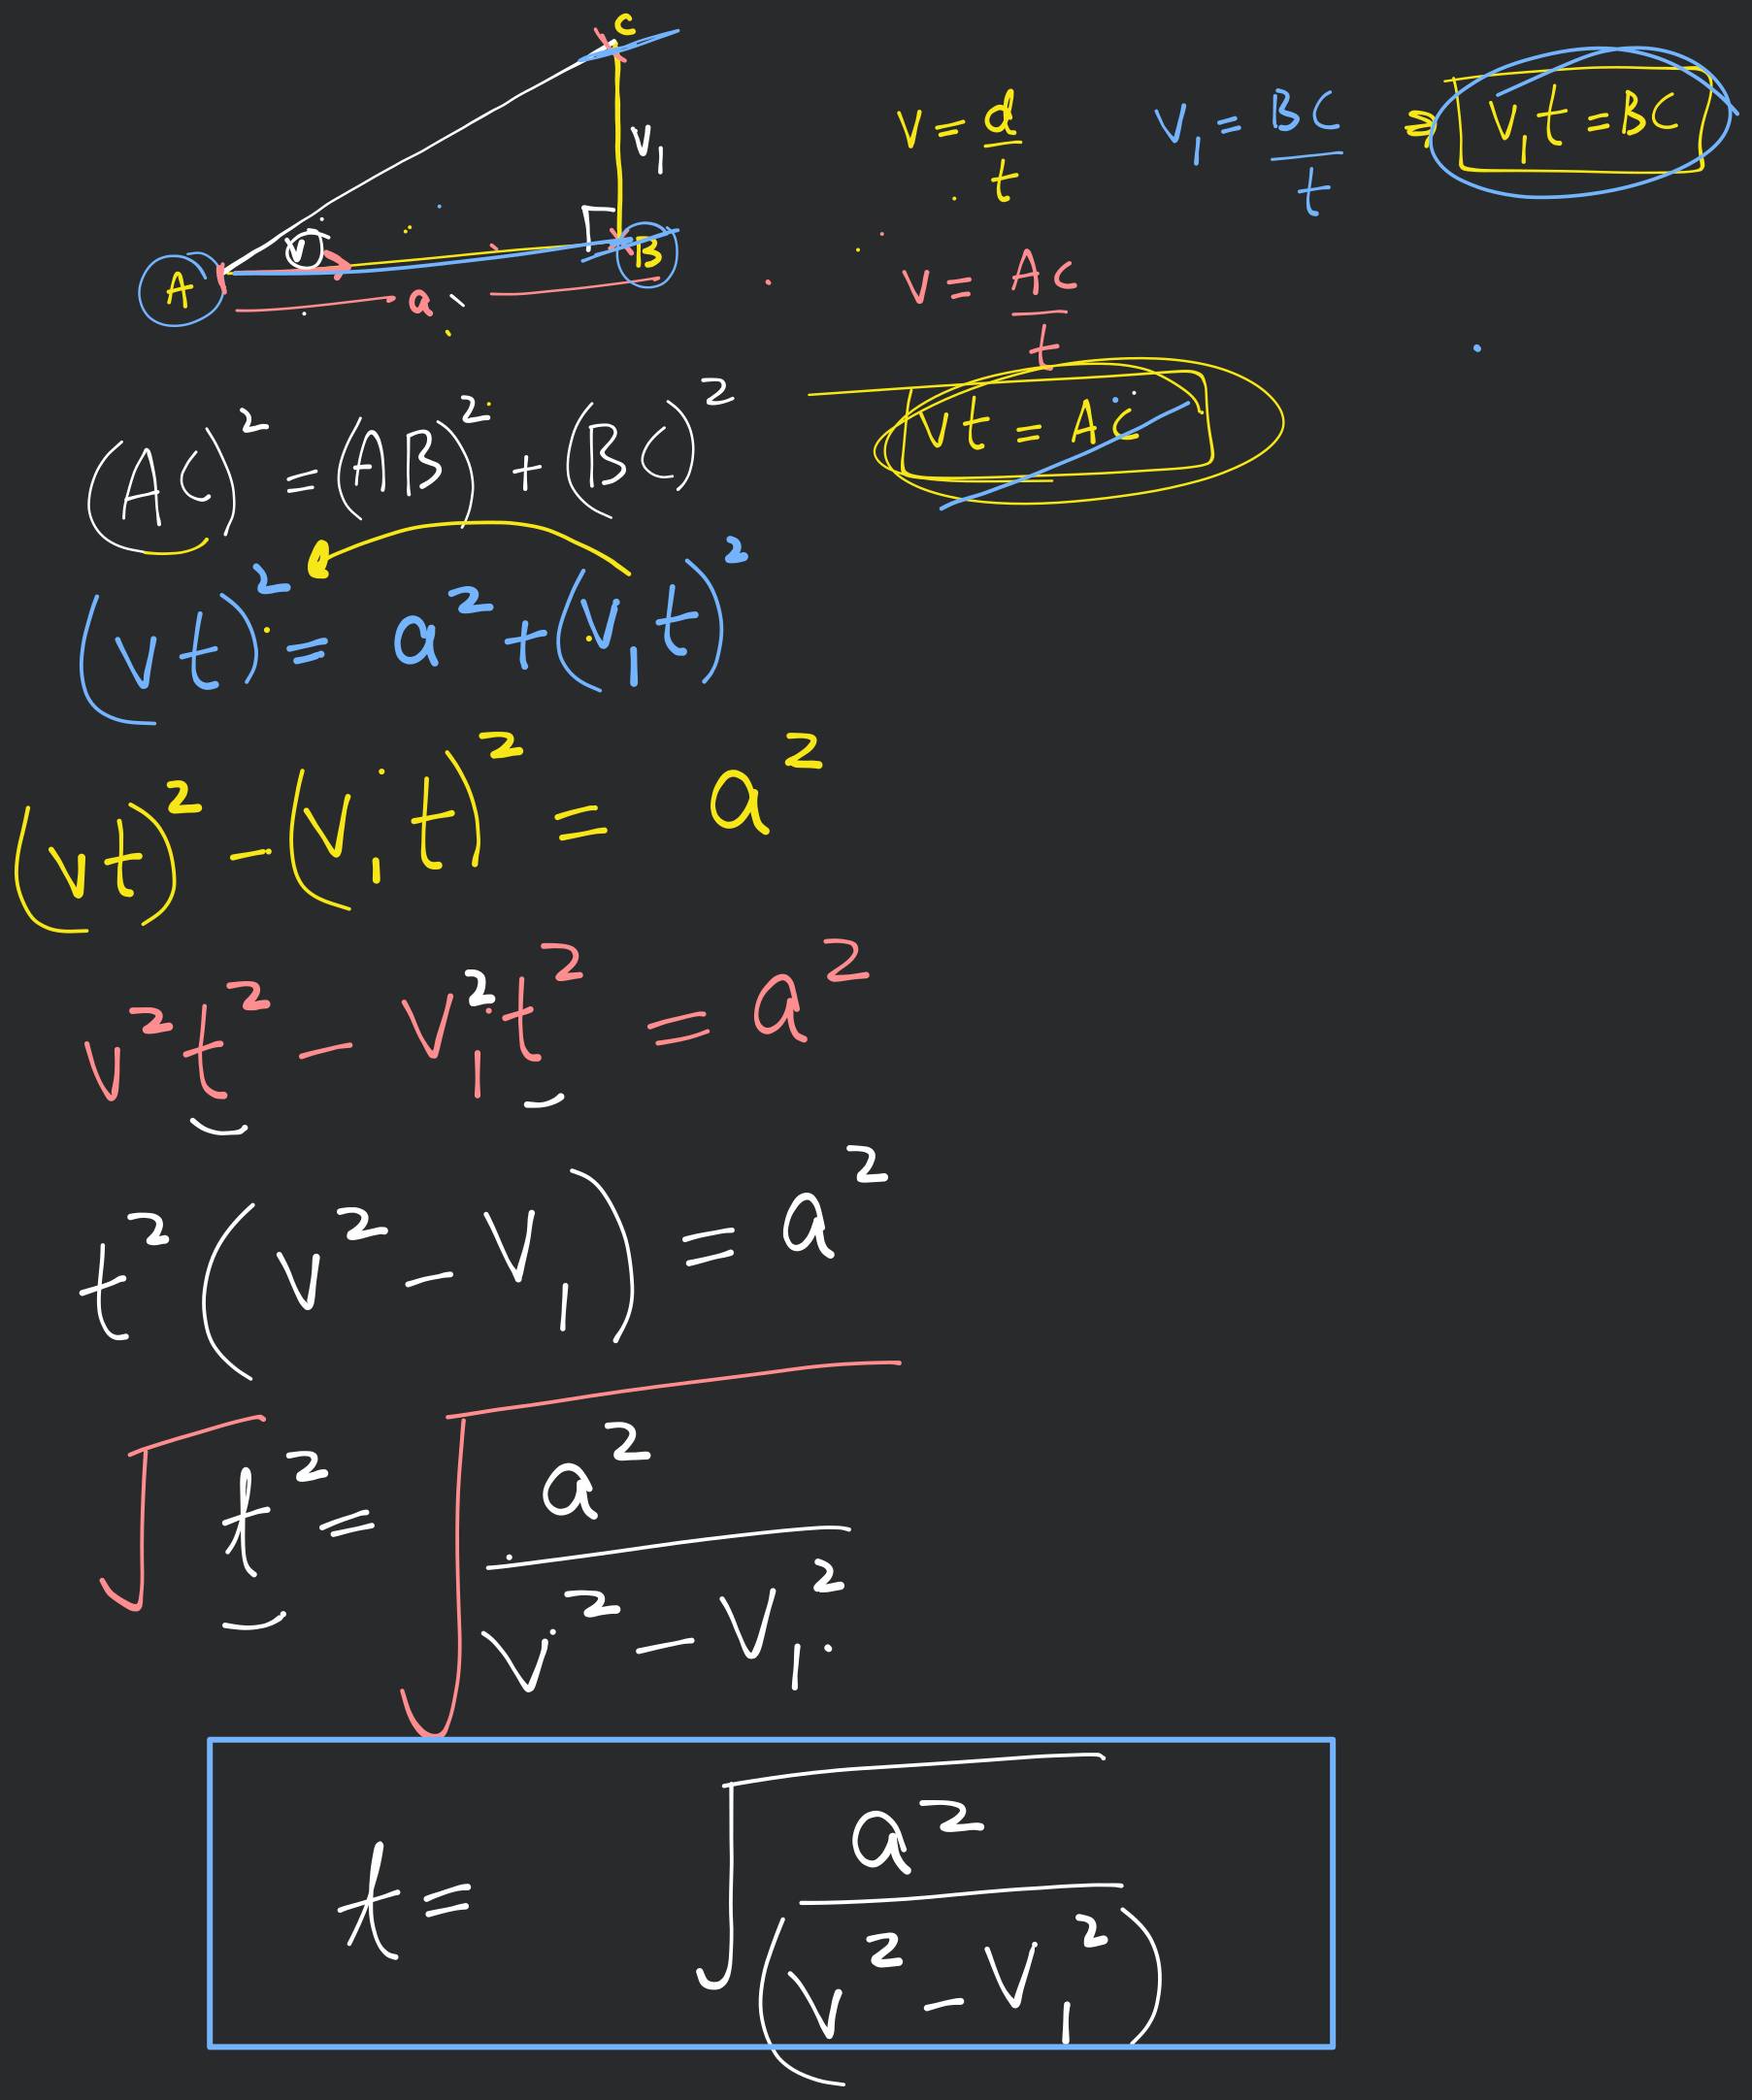 C
V₁
V
A
B
a
V = d/t
V₁ = BC/t
⇒ V₁t = BC
V = AC/t
Vt = AC
(AC)² = (AB)² + (BC)²
(Vt)² = a² + (V₁t)²
(Vt)² - (V₁t)² = a²
V²t² - V₁²t² = a²
t²(V² - V₁) = a²
√t² = √(a²/(V² - V₁²))
t = √(a²/(V² - V₁²))